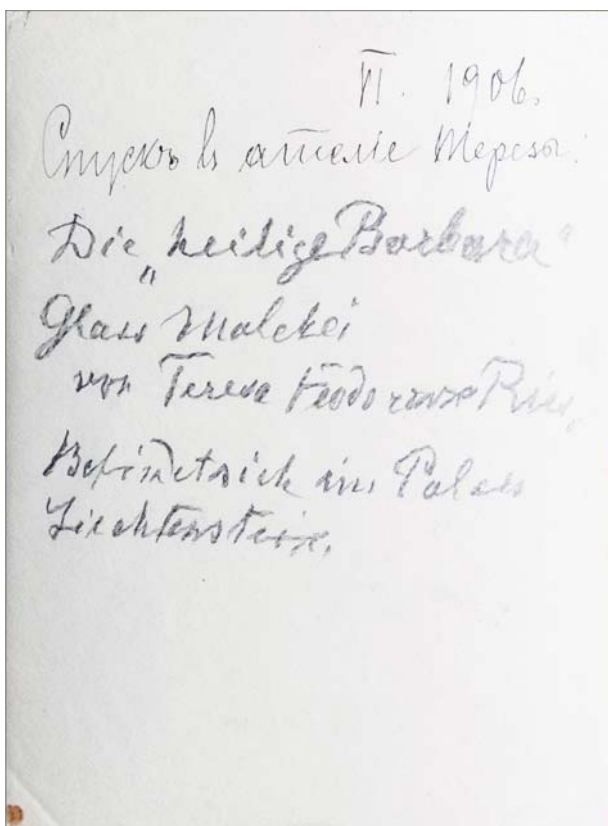 VI. 1906.
Спускъ въ ателье Терезы.
Die „heilige Barbara“
Glas Malerei
von Teresa Feodorowna Ries.
Befindet sich im Palais
Liechtenstein.